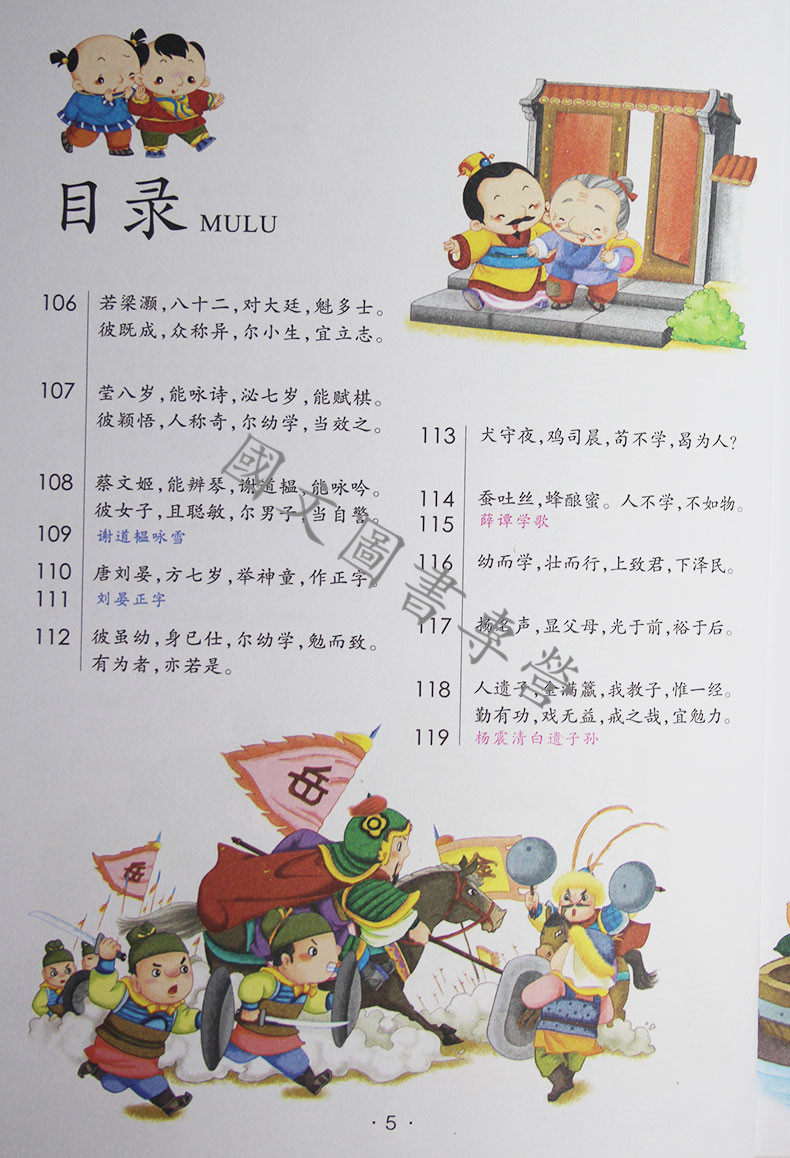 目录 MULU
106 若梁灏,八十二,对大廷,魁多士。
彼既成,众称异,尔小生,宜立志。
107 莹八岁,能咏诗,泌七岁,能赋棋。
彼颖悟,人称奇,尔幼学,当效之。
108 蔡文姬,能辨琴,谢道韫,能咏吟。
彼女子,且聪敏,尔男子,当自警。
109 谢道韫咏雪
110 唐刘晏,方七岁,举神童,作正字。
111 刘晏正字
112 彼虽幼,身已仕,尔幼学,勉而致。
有为者,亦若是。
113 犬守夜,鸡司晨,苟不学,曷为人?
114 蚕吐丝,蜂酿蜜。人不学,不如物。
115 薛谭学歌
116 幼而学,壮而行,上致君,下泽民。
117 扬名声,显父母,光于前,裕于后。
118 人遗子,金满籝,我教子,惟一经。
勤有功,戏无益,戒之哉,宜勉力。
119 杨震清白遗子孙
國文圖書專營
岳
岳
金
·5·